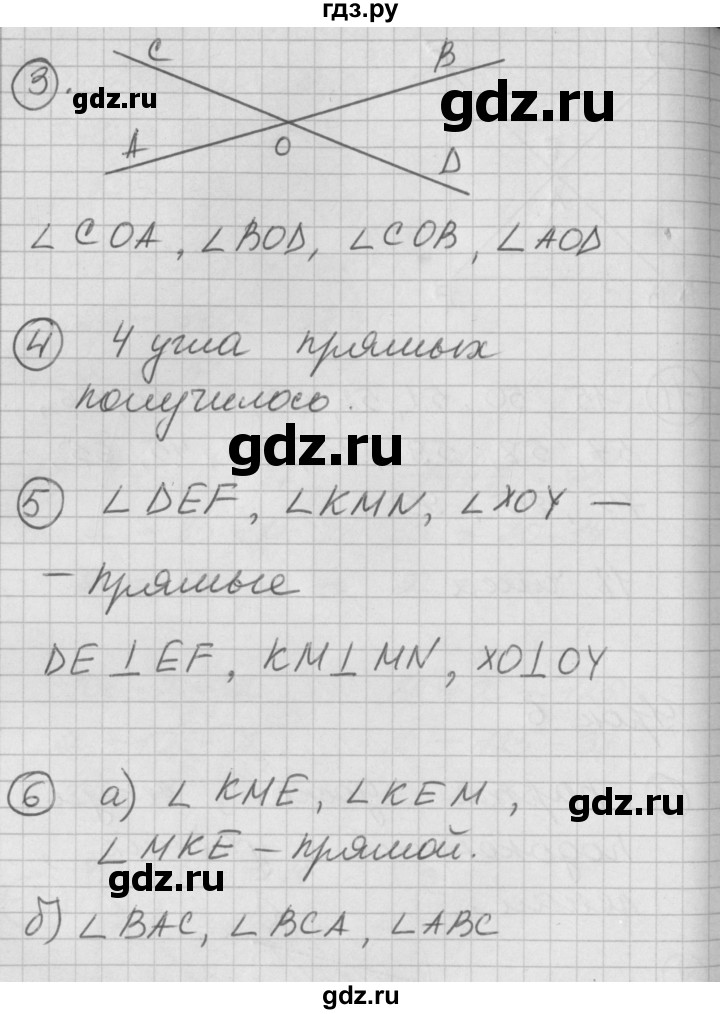 гдз.ру
3.
C
B
gdz.ru
gdz.ru
A
O
D
∠COA, ∠BOD, ∠COB, ∠AOD
4 4 угла прямых
получилось.
gdz.ru
5 ∠DEF, ∠KMN, ∠XOY —
— прямые
DE⊥EF, KM⊥MN, XO⊥OY
6 а) ∠KME, ∠KEM,
gdz.ru
∠MKE – прямой.
gdz.ru
б) ∠BAC, ∠BCA, ∠ABC
gdz.ru